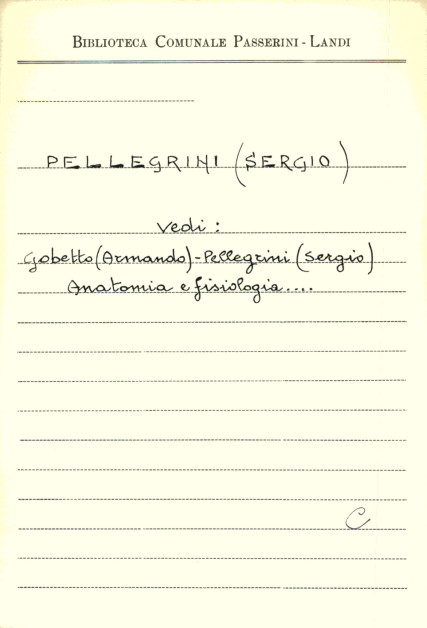 BIBLIOTECA COMUNALE PASSERINI - LANDI
PELLEGRINI (SERGIO)
vedi :
Gobetto (Armando) - Pellegrini (Sergio)
Anatomia e fisiologia....
C